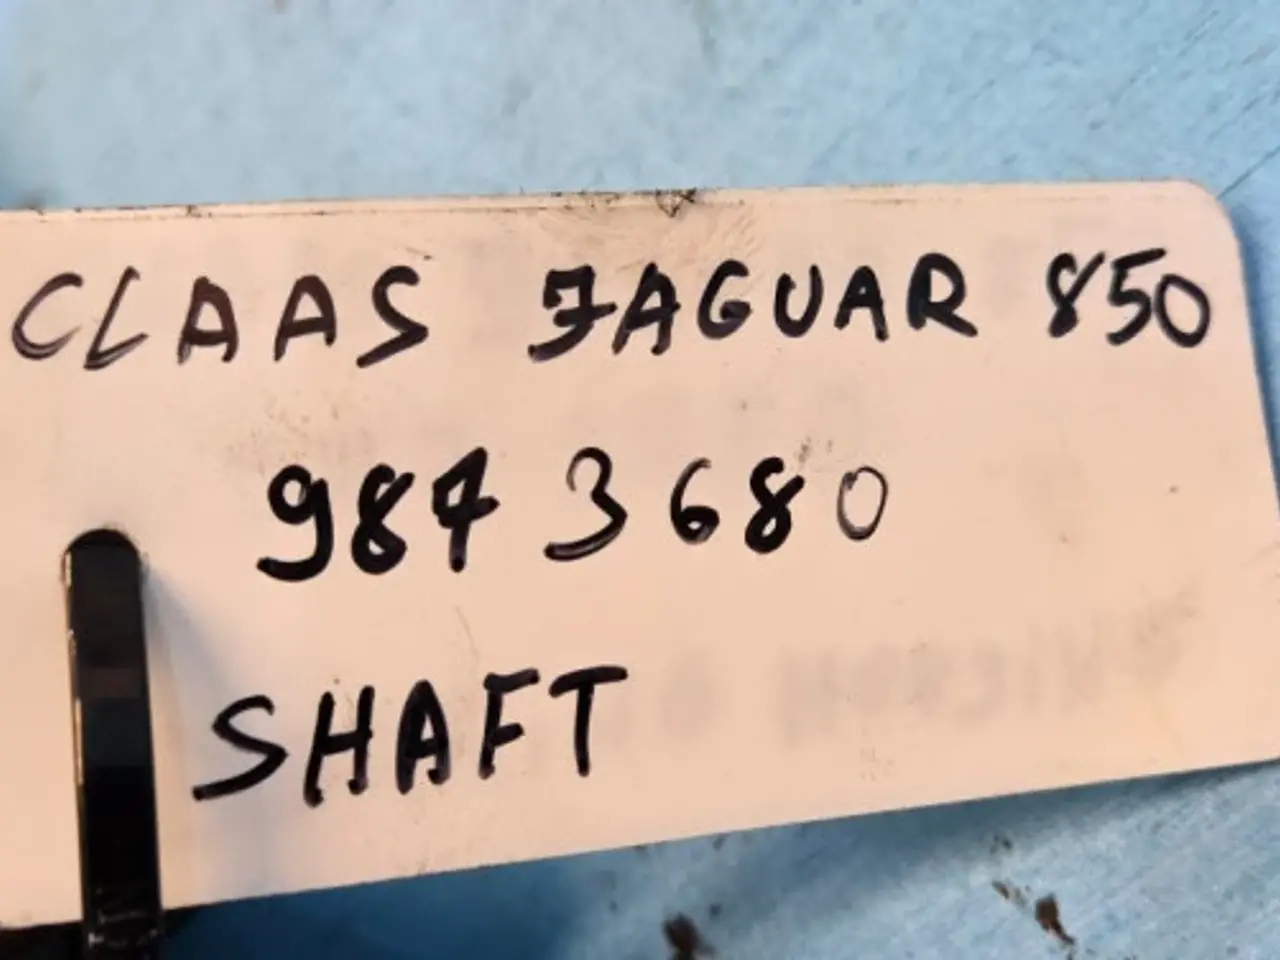 CLAAS JAGUAR 850
984 3680
SHAFT